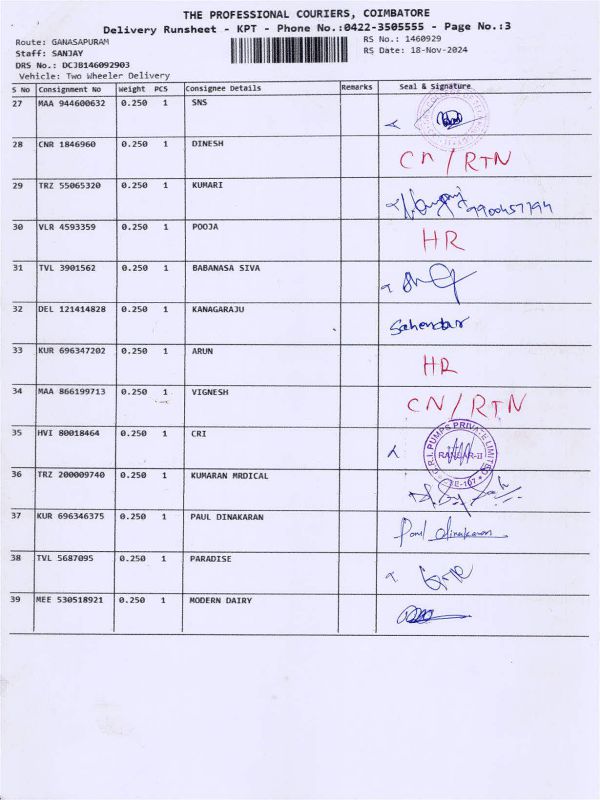 THE PROFESSIONAL COURIERS, COIMBATORE
Delivery Runsheet - KPT - Phone No.:0422-3505555 - Page No.:3
Route: GANASAPURAM
RS No.: 1460929
Staff: SANJAY
RS Date: 18-Nov-2024
DRS No.: DCJB146092903
Vehicle: Two Wheeler Delivery
S No Consignment No Weight PCS Consignee Details Remarks Seal & Signature
27 MAA 944600632 0.250 1 SNS
28 CNR 1846960 0.250 1 DINESH CN/RTN
29 TRZ 55065320 0.250 1 KUMARI
30 VLR 4593359 0.250 1 POOJA HR
31 TVL 3901562 0.250 1 BABANASA SIVA
32 DEL 121414828 0.250 1 KANAGARAJU Sahendar
33 KUR 696347202 0.250 1 ARUN HR
34 MAA 866199713 0.250 1 VIGNESH CN/RTN
35 HVI 80018464 0.250 1 CRI C.R.I. PUMPS PRIVATE LIMITED
36 TRZ 200009740 0.250 1 KUMARAN MRDICAL
37 KUR 696346375 0.250 1 PAUL DINAKARAN Paul dinakaran
38 TVL 5687095 0.250 1 PARADISE
39 MEE 530518921 0.250 1 MODERN DAIRY